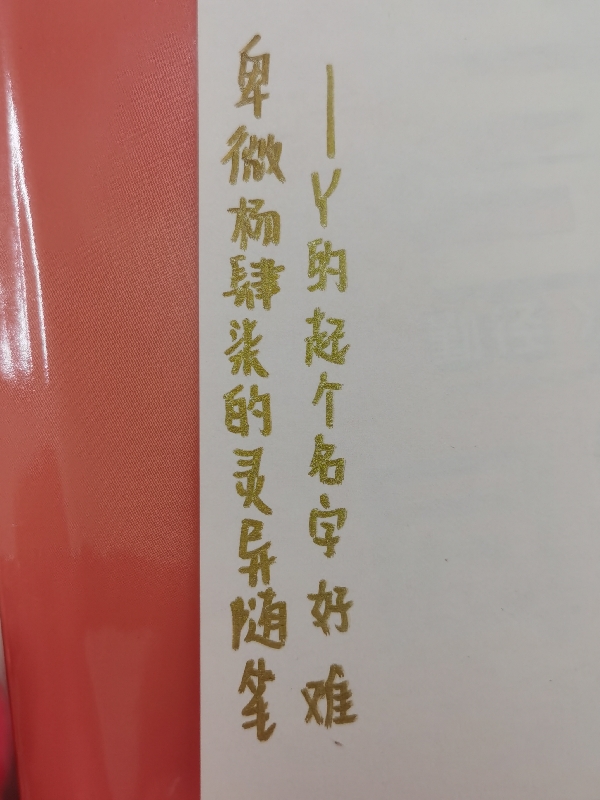 卑微杨肆柒的灵异随笔
—Y的起个名字好难